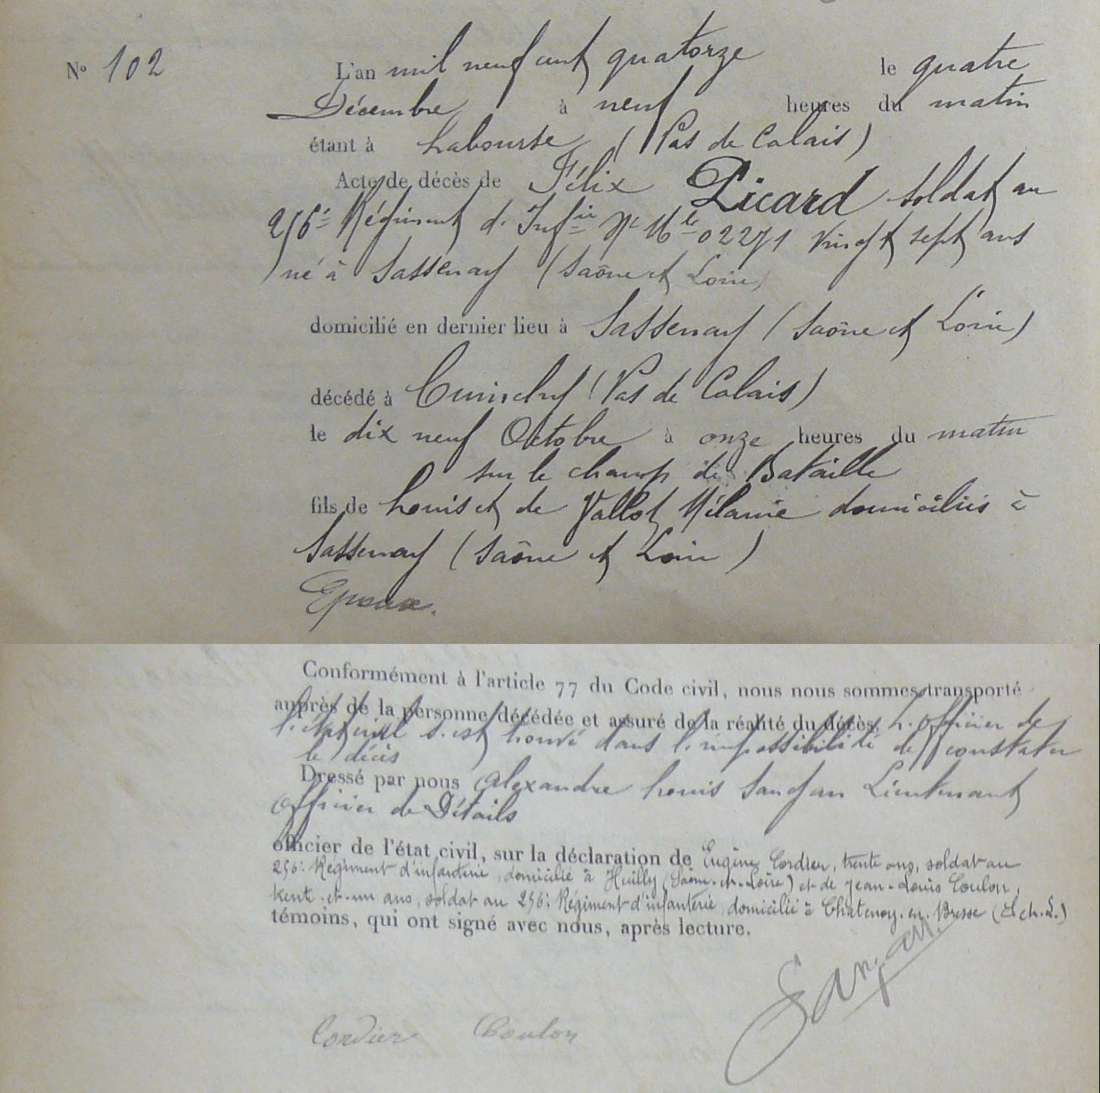 N° 102
L'an mil neuf cent quatorze le quatre
Décembre à neuf heures du matin
étant à Labourse (Pas de Calais)
Acte de décès de Félix Picard soldat au
256e Régiment d'Infie No Mle 02271 vingt sept ans
né à Sassenay (Saône et Loire)
domicilié en dernier lieu à Sassenay (Saône et Loire)
décédé à Cuinchy (Pas de Calais)
le dix neuf Octobre à onze heures du matin
sur le champ de Bataille
fils de Louis et de Vallot Mélanie domiciliés à
Sassenay (Saône et Loire)
Epoux.
Conformément à l'article 77 du Code civil, nous nous sommes transporté
auprès de la personne décédée et assuré de la réalité du décès. L'officier de
l'état civil s'est trouvé dans l'impossibilité de constater
le décès
Dressé par nous Alexandre Louis Lieutenant
Officier de Détails
officier de l'état civil, sur la déclaration de Eugène Cordier, trente ans, soldat au
256e Régiment d'infanterie, domicilié à Huilly (Saône-et-Loire) et de Jean-Louis Coulon,
trente-et-un ans, soldat au 256e Régiment d'infanterie, domicilié à Chatenoy-en-Bresse (S. et. L.)
témoins, qui ont signé avec nous, après lecture.
Cordier Coulon